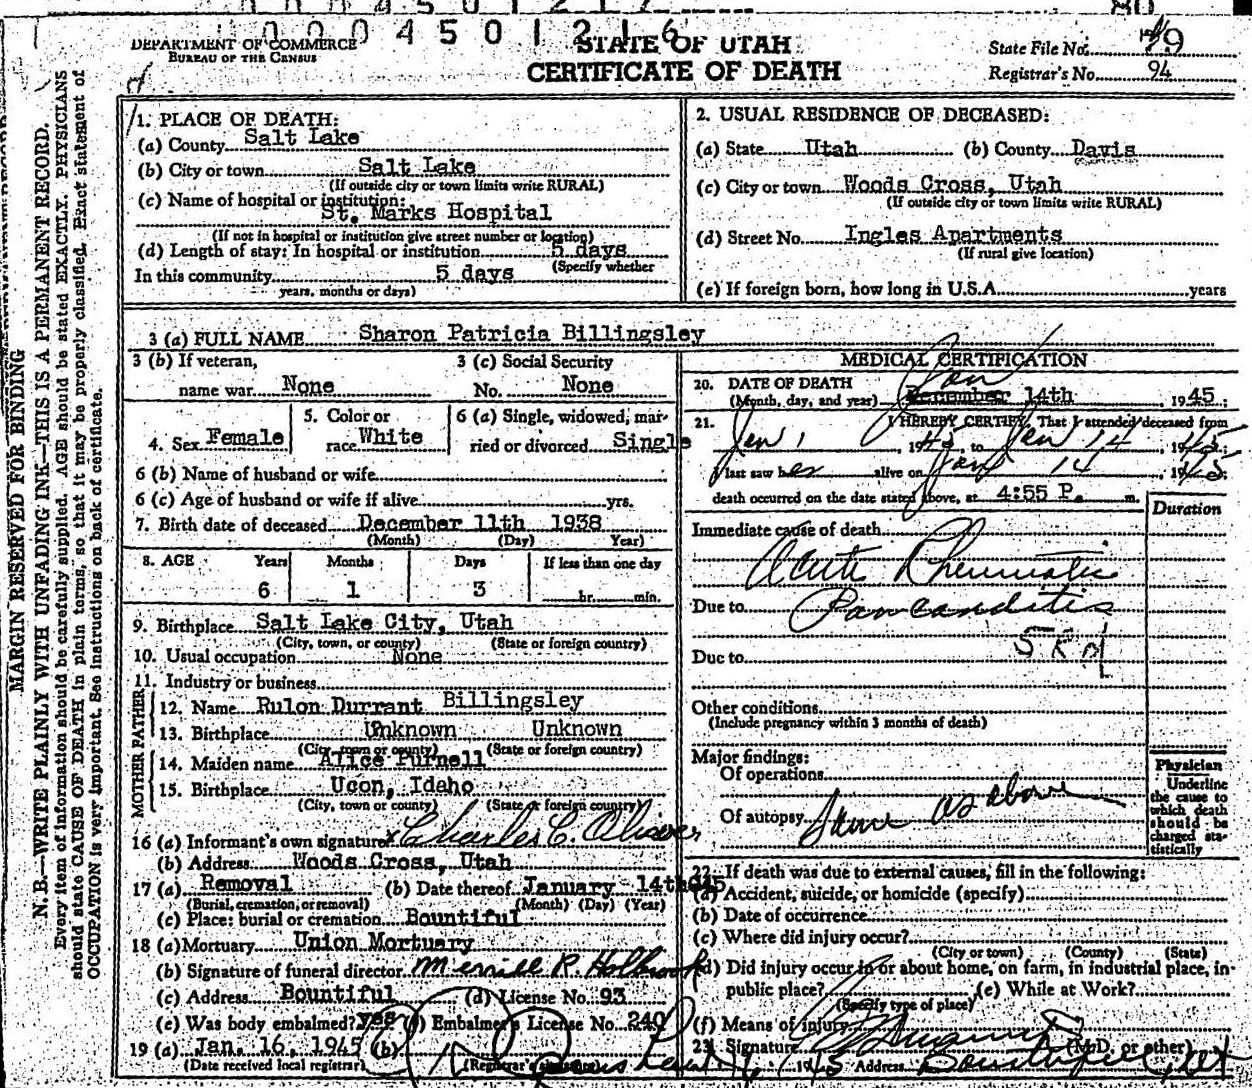 0 0 0 4 5 0 1 2 1 6
DEPARTMENT OF COMMERCE
BUREAU OF THE CENSUS
STATE OF UTAH
CERTIFICATE OF DEATH
State File No.
Registrar's No. 94
MARGIN RESERVED FOR BINDING
N. B.—WRITE PLAINLY WITH UNFADING INK—THIS IS A PERMANENT RECORD.
Every item of information should be carefully supplied. AGE should be stated EXACTLY. PHYSICIANS
should state CAUSE OF DEATH in plain terms, so that it may be properly classified. Exact statement of
OCCUPATION is very important. See instructions on back of certificate.
1. PLACE OF DEATH:
(a) County Salt Lake
(b) City or town Salt Lake
(If outside city or town limits write RURAL)
(c) Name of hospital or institution:
St. Marks Hospital
(If not in hospital or institution give street number or location)
(d) Length of stay: In hospital or institution 5 days
(Specify whether
In this community 5 days
years, months or days)
2. USUAL RESIDENCE OF DECEASED:
(a) State Utah (b) County Davis
(c) City or town Woods Cross, Utah
(If outside city or town limits write RURAL)
(d) Street No. Ingles Apartments
(If rural give location)
(e) If foreign born, how long in U.S.A. years
3 (a) FULL NAME Sharon Patricia Billingsley
3 (b) If veteran,
name war None
3 (c) Social Security
No. None
4. Sex Female
5. Color or
race White
6 (a) Single, widowed, mar-
ried or divorced Single
6 (b) Name of husband or wife
6 (c) Age of husband or wife if alive yrs.
7. Birth date of deceased December 11th 1938
(Month) (Day) Year)
8. AGE Years Months Days If less than one day
6 1 3 hr. min.
9. Birthplace Salt Lake City, Utah
(City, town, or county) (State or foreign country)
10. Usual occupation None
11. Industry or business
FATHER
12. Name Rulon Durrant Billingsley
13. Birthplace Unknown Unknown
(City, town or county) (State or foreign country)
MOTHER
14. Maiden name Alice Purnell
15. Birthplace Ucon, Idaho
(City, town or county) (State or foreign country)
16 (a) Informant's own signature x Charles C. Oliver
(b) Address Woods Cross, Utah
17 (a) Removal (b) Date thereof January 14th 45
(Burial, cremation, or removal) (Month) (Day) (Year)
(c) Place: burial or cremation Bountiful
18 (a) Mortuary Union Mortuary
(b) Signature of funeral director Merrill R. Holbrook
(c) Address Bountiful (d) License No. 93
(e) Was body embalmed? yes (f) Embalmer's License No. 240
19 (a) Jan. 16, 1945 (b)
(Date received local registrar) (Registrar's signature)
MEDICAL CERTIFICATION
Jan
20. DATE OF DEATH
(Month, day, and year) December 14th, 1945;
21. I HEREBY CERTIFY, That I attended deceased from
Jan 1, 1945, to Jan 14, 1945;
I last saw her alive on Jan 14, 1945;
death occurred on the date stated above, at 4:55 P. m.
Duration
Immediate cause of death
Acute Rheumatic
Due to Pancarditis
Due to
Other conditions
(Include pregnancy within 3 months of death)
Major findings:
Of operations
Of autopsy Same as above
Physician
Underline
the cause to
which death
should be
charged sta-
tistically
22. If death was due to external causes, fill in the following:
(a) Accident, suicide, or homicide (specify)
(b) Date of occurrence
(c) Where did injury occur?
(City or town) (County) (State)
(d) Did injury occur in or about home, on farm, in industrial place, in
public place? (e) While at Work?
(Specify type of place)
(f) Means of injury
23. Signature (M.D. or other)
Address Bountiful Utah